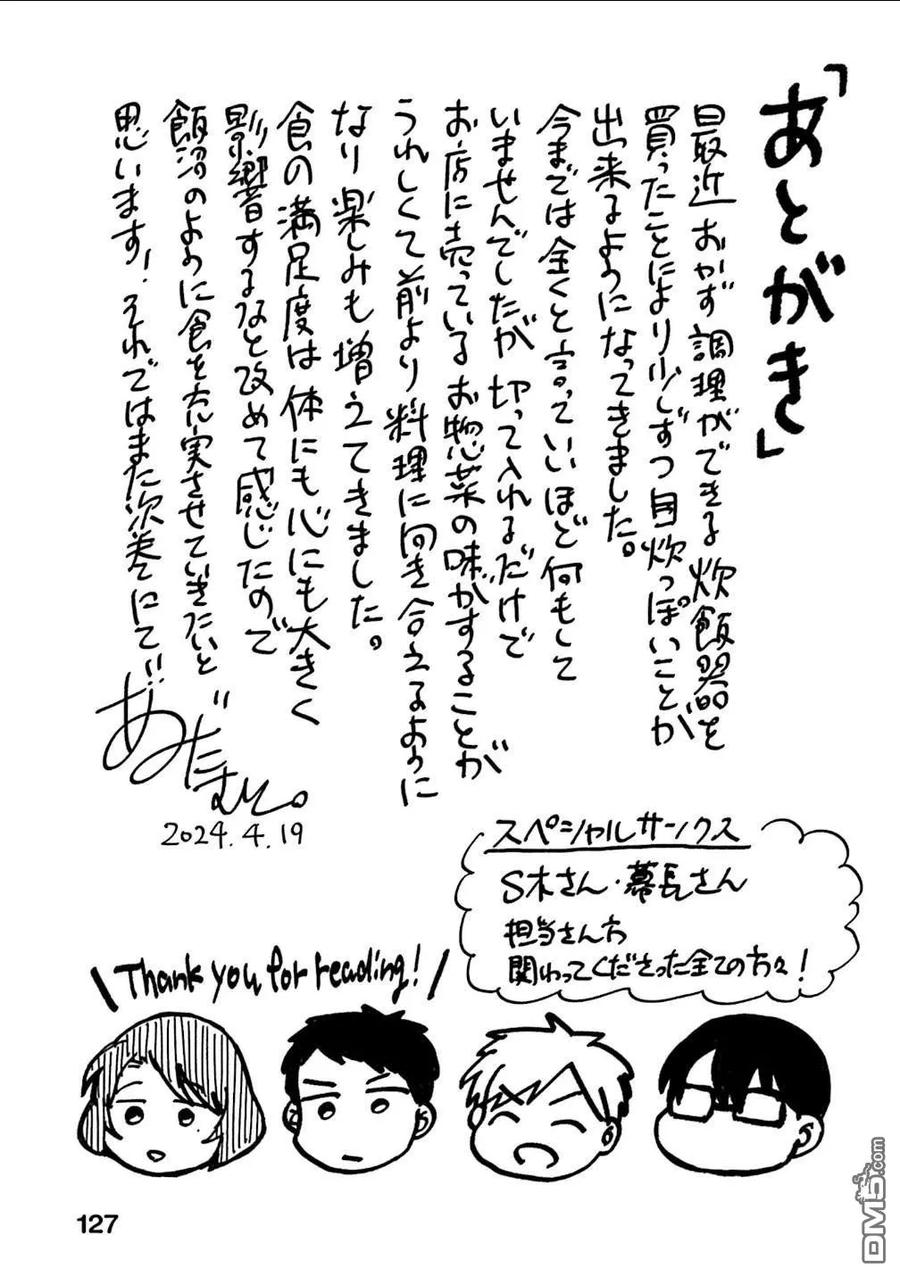 「あとがき」
最近おかず調理ができる炊飯器を
買ったことにより少しずつ自炊っぽいことが
出来るようになってきました。
今までは全くと言っていいほど何もして
いませんでしたが切って入れるだけで
お店に売っているお惣菜の味がすることが
うれしくて前より料理に向き合えるように
なり楽しみも増えてきました。
食の満足度は体にも心にも大きく
影響するなと改めて感じたので
飯沼のように食を充実させていきたいと
思います！それではまた次巻にて!!
あみだむく。
2024.4.19
スペシャルサンクス
S木さん・幕長さん
担当さん方
関わってくださった全ての方々！
Thank you for reading!
127
DM5.com